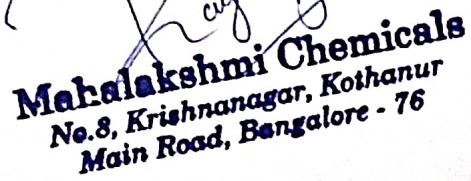 Mahalakshmi Chemicals
No.8, Krishnanagar, Kothanur
Main Road, Bangalore - 76